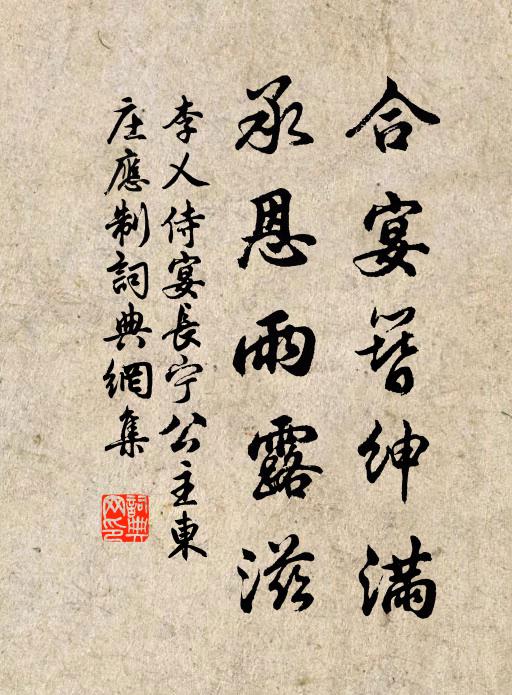 合宴簪紳滿
承恩雨露滋
李乂侍宴長宁公主東
庄應制詞典網集
詞典網印